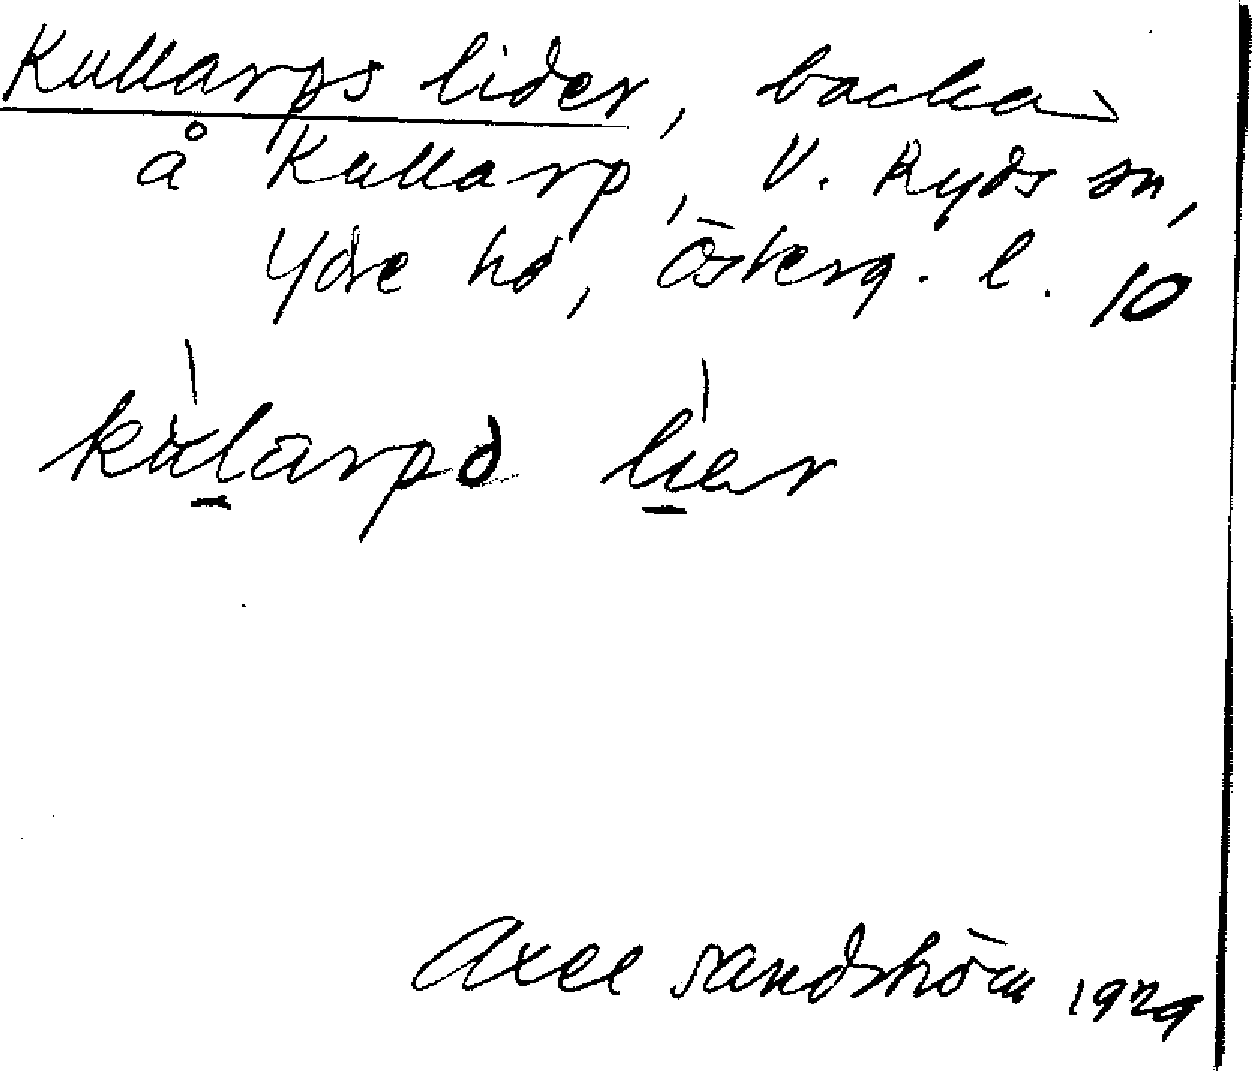 Kullarps lider, backar
å Kullarp, V. Ryds sn,
Ydre hd, Österg. l. 10
kùlarpə lìer
Axel Sandström 1929